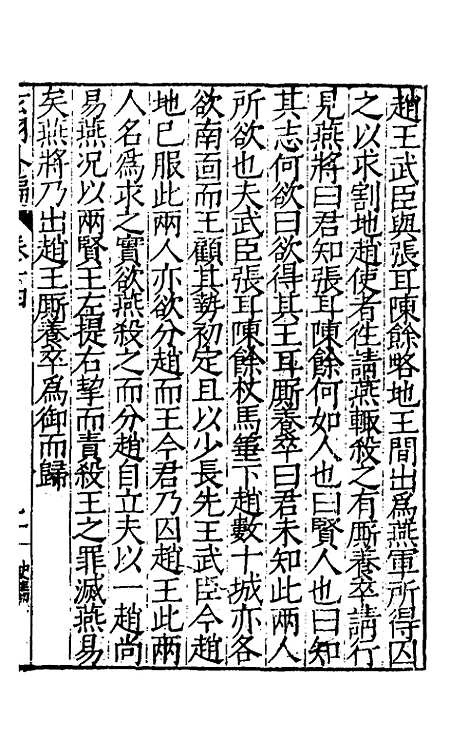 趙王武臣與張耳陳餘略地王間出爲燕軍所得囚
之以求割地趙使者往請燕輙殺之有厮養卒請行
見燕將曰君知張耳陳餘何如人也曰賢人也曰知
其志何欲曰欲得其王耳厮養卒曰君未知此兩人
所欲也夫武臣張耳陳餘杖馬箠下趙數十城亦各
欲南面而王顧其勢初定且以少長先王武臣今趙
地已服此兩人亦欲分趙而王今君乃囚趙王此兩
人名爲求之實欲燕殺之而分趙自立夫以一趙尚
易燕况以兩賢王左提右挈而責殺王之罪滅燕易
矣燕將乃出趙王厮養卒爲御而歸
史編